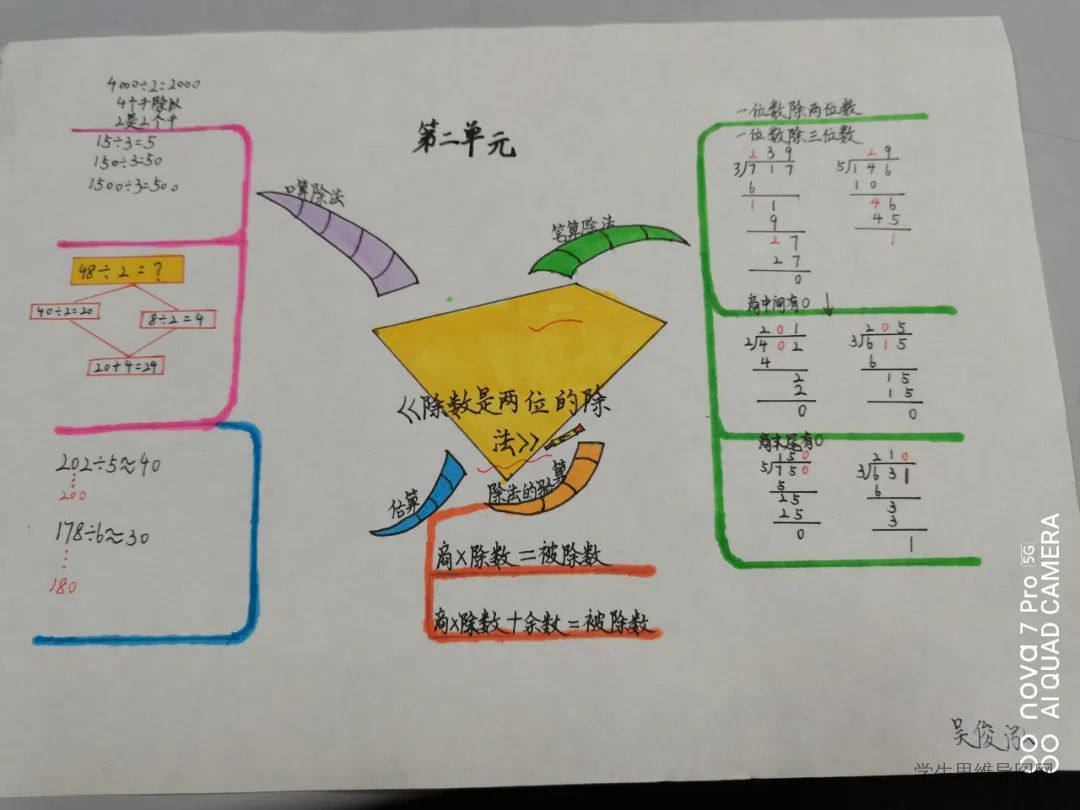 第二单元
4000÷2=2000
4个千除以
2是2个千
15÷3=5
150÷3=50
1500÷3=500
口算除法
48÷2=?
40÷2=20
8÷2=4
20+4=24
202÷5≈40
200
178÷6≈30
180
估算
《除数是两位的除
法》
除法的验算
商×除数=被除数
商×除数+余数=被除数
笔算除法
一位数除两位数
一位数除三位数
239
3/717
6
11
9
27
27
0
29
5/146
10
46
45
1
商中间有0
201
2/402
4
2
2
0
205
3/615
6
15
15
0
商末尾有0
150
5/750
5
25
25
0
210
3/631
6
3
3
1
吴俊
nova 7 Pro 5G
AI QUAD CAMERA
学生思维导图网